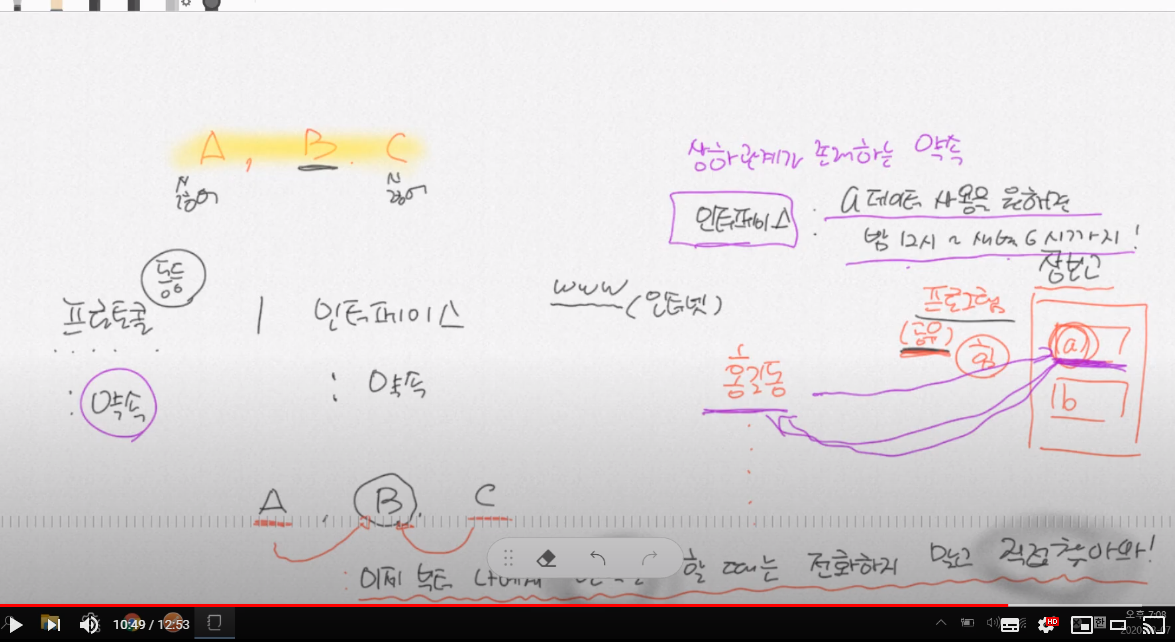 A, B. C
상하관계가 존재하는 약속
인터페이스 : a 데이터 사용을 원하면
밤 12시 ~ 새벽 6시까지!
장보고
동등
프로토콜 | 인터페이스
www (인터넷)
프로그램
(공유)
a
홍길동
: 약속
: 약속
b
A, B. C
: 이제 부터 나에게 할 때는 전화하지 말고 직접 찾아와!
10:49 / 12:53
HD
오후 7:08